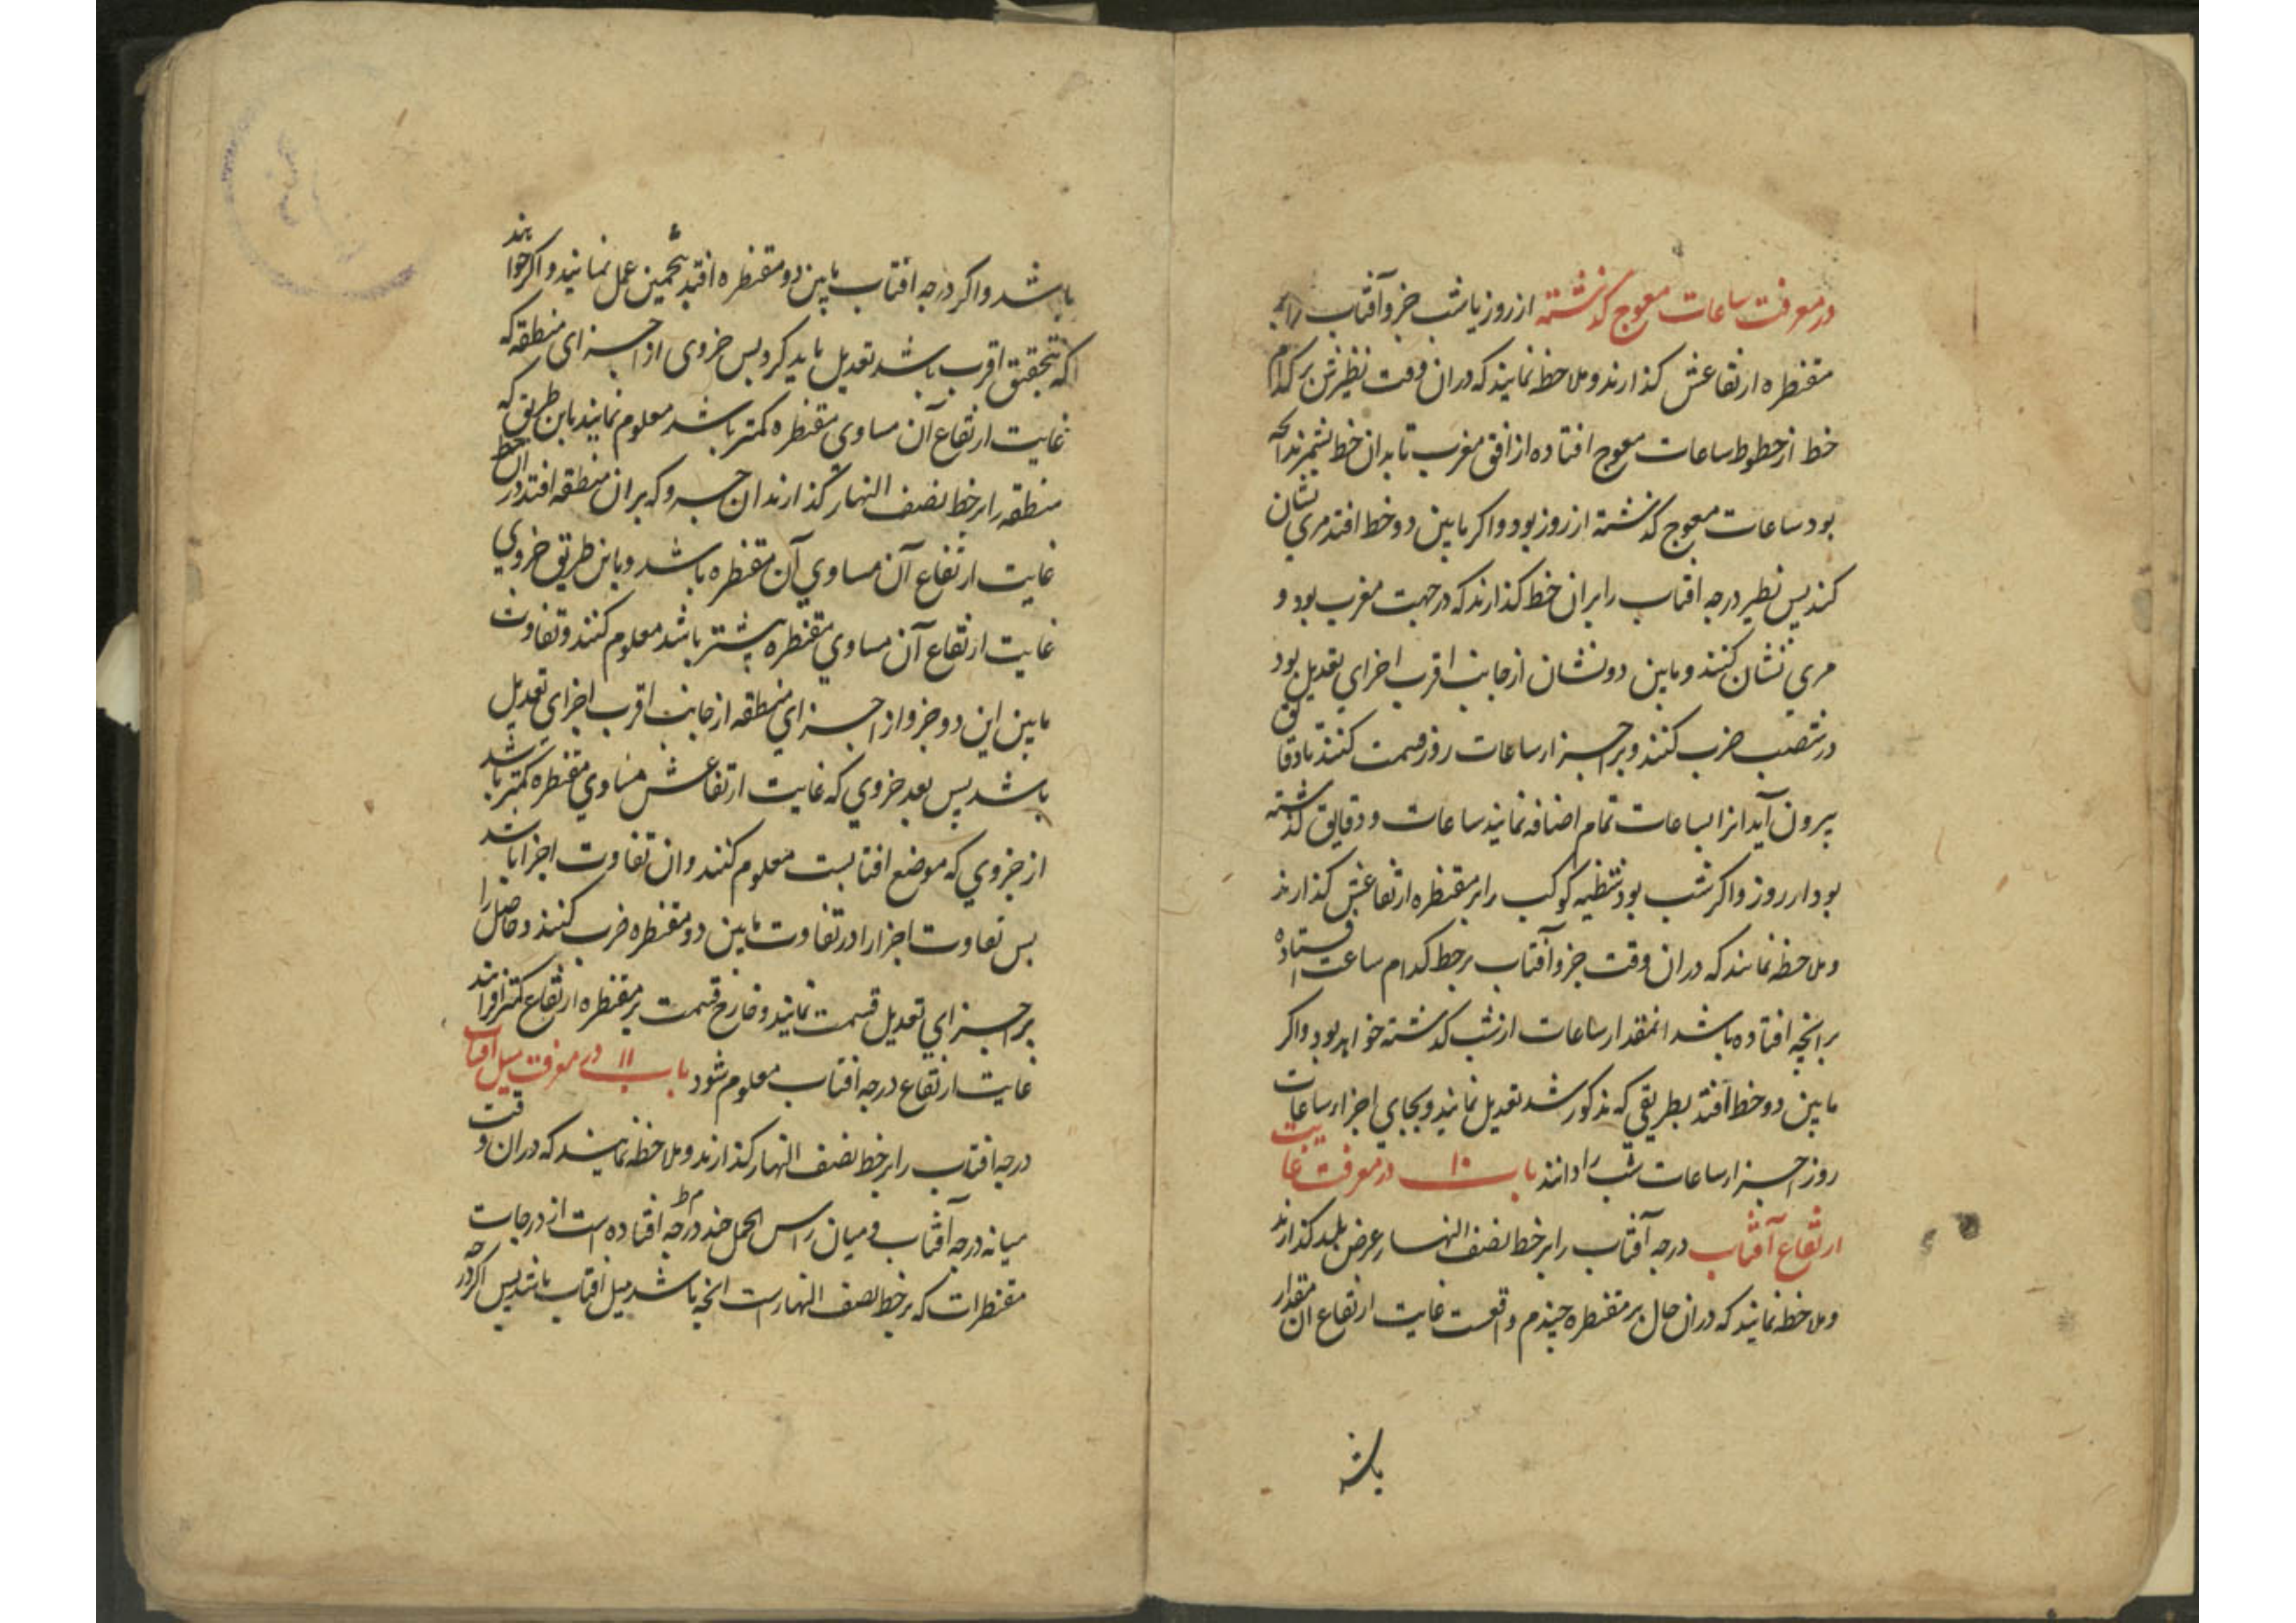 در معرفت ساعات معوج گذشته از روز یا شب جزو آفتاب را بر
مقنطره ارتفاعش گذارند و ملاحظه نمایند که دران وقت نظیرش بر کدام
خط از خطوط ساعات معوج افتاده از افق مغرب تا بدان خط بشمرند آنچه
بود ساعات معوج گذشته از روز بود و اگر مابین دو خط افتد مری نشان
کنند پس نظیر درجه افتاب را بران خط گذارند که در جهت مغرب بود و
مری نشان کنند و مابین دو نشان از جانب اقرب اجزای تعدیل بود
در شصت ضرب کنند و بر اجزاء ساعات روز قسمت کنند تا دقایق
بیرون آید انرا بساعات تمام اضافه نمایند ساعات و دقایق گذشته
بود از روز و اگر شب بود شظیه کوکب را بر مقنطره ارتفاعش گذارند
و ملاحظه نمایند که دران وقت جزو آفتاب بر خط کدام ساعت افتاده
بر انچه افتاده باشد انمقدار ساعات از شب گذشته خواهد بود و اگر
مابین دو خط افتد بطریقی که مذکور شد تعدیل نمایند و بجای اجزاء ساعات
روز اجزاء ساعات شب را دانند باب ۱۰ در معرفت غایت
ارتفاع آفتاب درجه آفتاب را بر خط نصف النهار عرض بلد گذارند
و ملاحظه نمایند که دران حال بر مقنطره چندم واقعست غایت ارتفاع ان مقدار
باشد
باشد و اگر درجه افتاب مابین دو مقنطره افتد بتخمین عمل نمایند و اگر خواهند
که بتحقیق اقرب باشد تعدیل باید کرد پس جزوی از اجزای منطقه که
غایت ارتفاع آن مساوی مقنطره کمتر باشد معلوم نمایند باین طریق که
منطقه را بر خط نصف النهار گذارند ان جزو که بران منطقه افتد در ان خط
غایت ارتفاع آن مساوی آن مقنطره باشد و باین طریق جزوی
غایت ارتفاع آن مساوی مقنطره بیشتر باشد معلوم کنند و تفاوت
مابین این دو جزو از اجزای منطقه از جانب اقرب اجزای تعدیل
باشد پس بعد جزوی که غایت ارتفاعش مساوی مقنطره کمتر باشد
از جزوی که موضع افتابست معلوم کنند و ان تفاوت اجزا باشد
پس تفاوت اجزا را در تفاوت مابین دو مقنطره ضرب کنند و حاصل را
بر اجزای تعدیل قسمت نمایند و خارج قسمت بر مقنطره ارتفاع کمتر افزایند
غایت ارتفاع درجه افتاب معلوم شود باب ۱۱ در معرفت میل آفتاب
درجه افتاب را بر خط نصف النهار گذارند و ملاحظه نمایند که دران وقت
میانه درجه آفتاب و میان راس الحمل چند درجه افتاده است از درجات
مقنطرات که بر خط نصف النهار است انچه باشد میل افتاب باشد پس اگر درجه